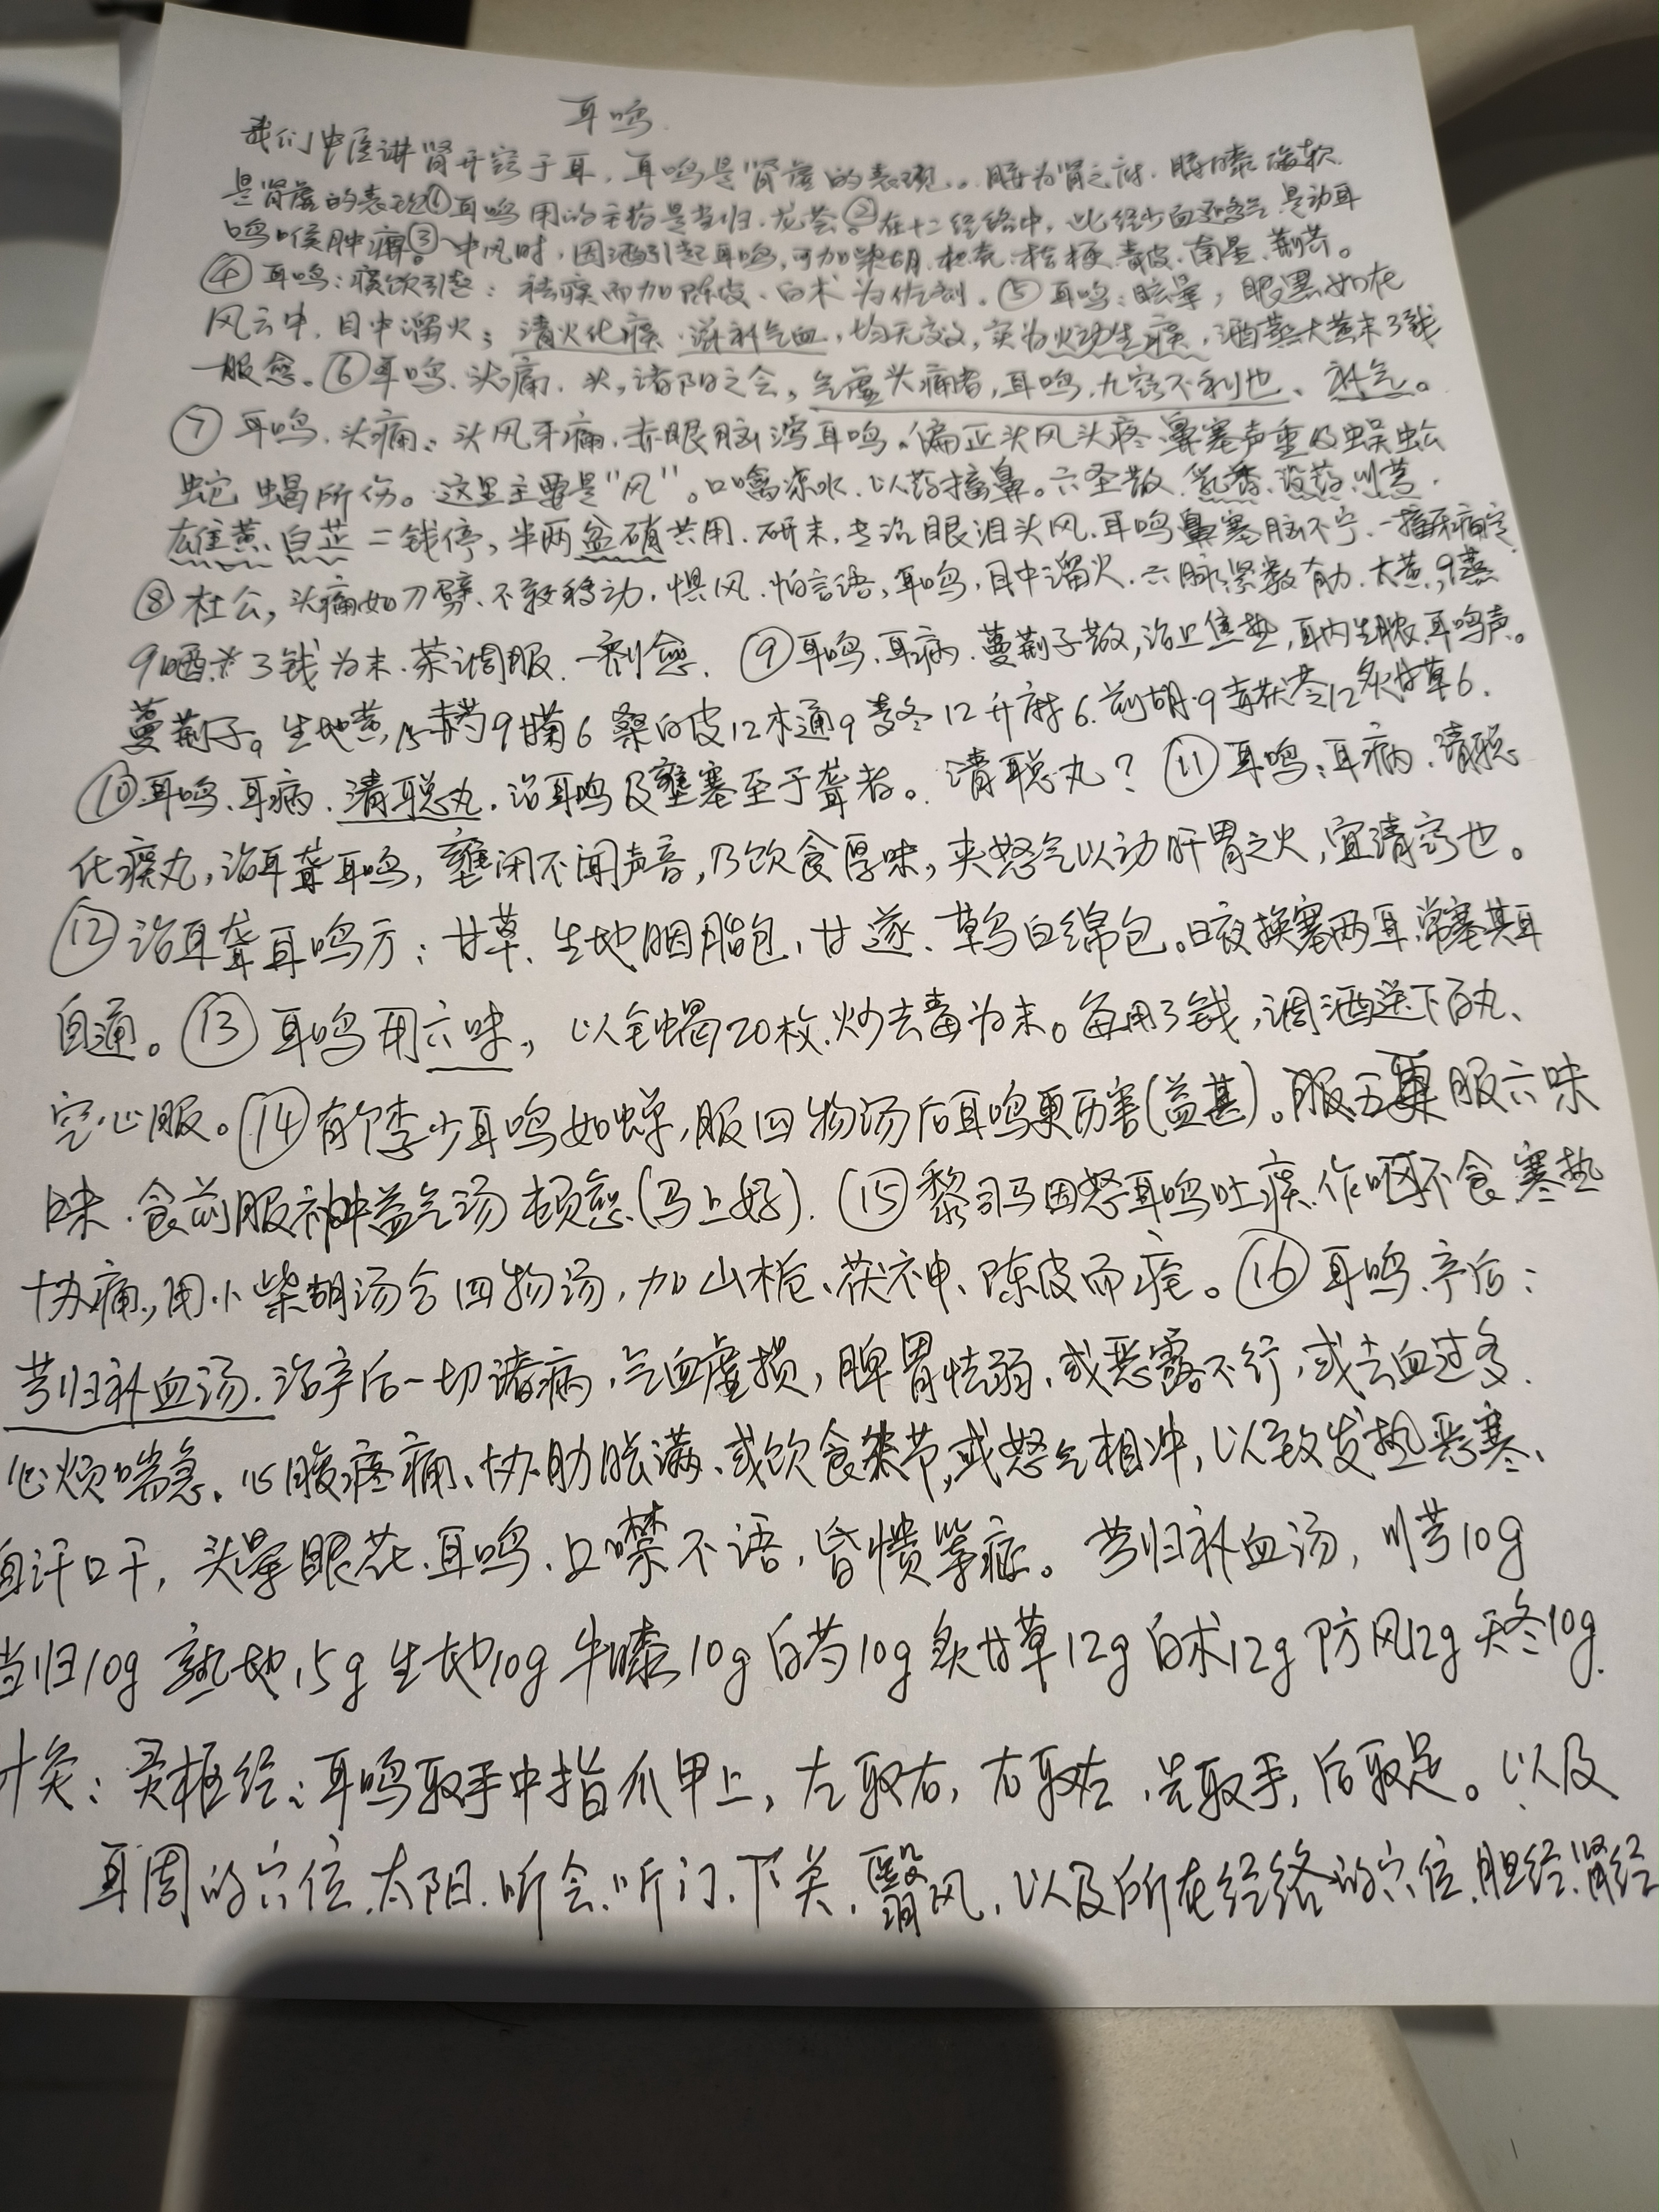 耳鸣
我们中医讲肾开窍于耳,耳鸣是肾虚的表现。腰为肾之府,腰膝酸软
是肾虚的表现①耳鸣用的主药是当归、龙荟②在十二经络中,此经少血多气,是动耳
鸣喉肿痛。③中风时,因酒引起耳鸣,可加柴胡、枳壳、桔梗、青皮、南星、荆芥。
④耳鸣:痰饮引起:祛痰而加陈皮、白术为佐剂。⑤耳鸣:眩晕,眼黑如在
风云中,目中溜火;清火化痰、滋补气血,均无效,实为火动生痰,酒蒸大黄末3钱
一服愈。⑥耳鸣、头痛、头,诸阳之会,气虚头痛者,耳鸣、九窍不利也、补气。
⑦耳鸣、头痛、头风牙痛、赤眼脑泻耳鸣。偏正头风头疼鼻塞声重及蜈蚣
蛇蝎所伤。这里主要是"风"。口噙凉水,以药搐鼻。六圣散、乳香、没药、川芎、
雄黄、白芷二钱停,半两盆硝共用、研末,专治眼泪头风、耳鸣鼻塞脑不宁、一搐牙痛定
⑧杜公,头痛如刀劈、不敢移动,惧风、怕言语,耳鸣,目中溜火、六脉紧数有力、大黄,9蒸
9晒 3钱为末、茶调服、一剂愈. ⑨耳鸣、耳病、蔓荆子散,治上焦热,耳内生脓、耳鸣声。
蔓荆子9 生地黄15赤芍9甘菊6 桑白皮12木通9麦冬12升麻6.前胡9赤茯苓12炙甘草6.
⑩耳鸣、耳病、清聪丸,治耳鸣及壅塞至于聋者。清聪丸?⑪耳鸣:耳病、清聪
化痰丸,治耳聋耳鸣,壅闭不闻声音,乃饮食厚味,夹怒气以动肝胃之火,宜清窍也。
⑫治耳聋耳鸣方:甘草、生地胭脂包、甘遂、草乌白绵包。日夜换塞两耳,常塞其耳
自通。⑬耳鸣用六味,以全蝎20枚、炒去毒为末。每用3钱,调酒送下百丸、
空心服。⑭有个李少耳鸣如蝉,服四物汤后耳鸣更厉害(益甚)。服 服六味
味.食前服补中益气汤顿愈(马上好).⑮黎司马因怒耳鸣吐痰、作呕不食寒热
协痛,用小柴胡汤合四物汤,加山栀、茯神、陈皮而痊。⑯耳鸣、产后:
芎归补血汤.治产后一切诸病,气血虚损,脾胃怯弱,或恶露不行,或去血过多.
心烦喘急、心腹疼痛、协肋胀满、或饮食 节,或怒气相冲,以致发热恶寒、
自汗口干,头晕眼花、耳鸣、口噤不语,昏愦等症。芎归补血汤,川芎10g
当归10g 熟地15g 生地10g 牛膝10g 白芍10g 炙甘草12g 白术12g 防风12g 天冬10g.
灸:灵枢经:耳鸣取手中指爪甲上,左取右,右取左,先取手,后取足。以及
耳周的穴位、太阳、听会、听门、下关、翳风,以及所在经络的穴位、胆经、肾经